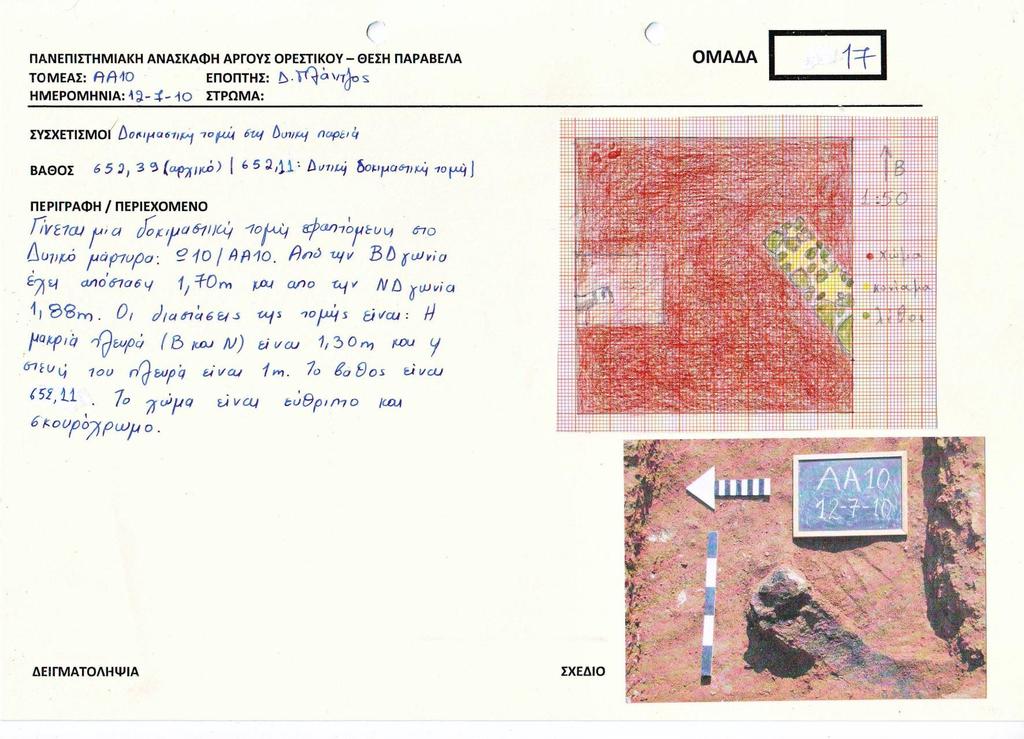 ΠΑΝΕΠΙΣΤΗΜΙΑΚΗ ΑΝΑΣΚΑΦΗ ΑΡΓΟΥΣ ΟΡΕΣΤΙΚΟΥ – ΘΕΣΗ ΠΑΡΑΒΕΛΑ
ΤΟΜΕΑΣ: ΑΑ10 ΕΠΟΠΤΗΣ: Δ. Πλάντζος
ΗΜΕΡΟΜΗΝΙΑ: 12-7-10 ΣΤΡΩΜΑ:
ΟΜΑΔΑ 17
ΣΥΣΧΕΤΙΣΜΟΙ Δοκιμαστική τομή στη Δυτική παρειά
ΒΑΘΟΣ 652,39 (αρχικό) | 652,11: Δυτική δοκιμαστική τομή|
ΠΕΡΙΓΡΑΦΗ / ΠΕΡΙΕΧΟΜΕΝΟ
Γίνεται μια δοκιμαστική τομή εφαπτόμενη στο
Δυτικό μάρτυρα: Ω10/ΑΑ10. Από την ΒΔ γωνία
έχει απόσταση 1,70m και απο την ΝΔ γωνία
1,88m. Οι διαστάσεις της τομής είναι: Η
μακριά πλευρά (Β και Ν) είναι 1,30m και η
στενή του πλευρά είναι 1m. Το βαθος είναι
652,11. Το χώμα είναι εύθριπτο και
σκουρόχρωμο.
Β
1:50
χώμα
κονίαμα
λίθοι
ΑΑ10
12-7-10
ΔΕΙΓΜΑΤΟΛΗΨΙΑ
ΣΧΕΔΙΟ